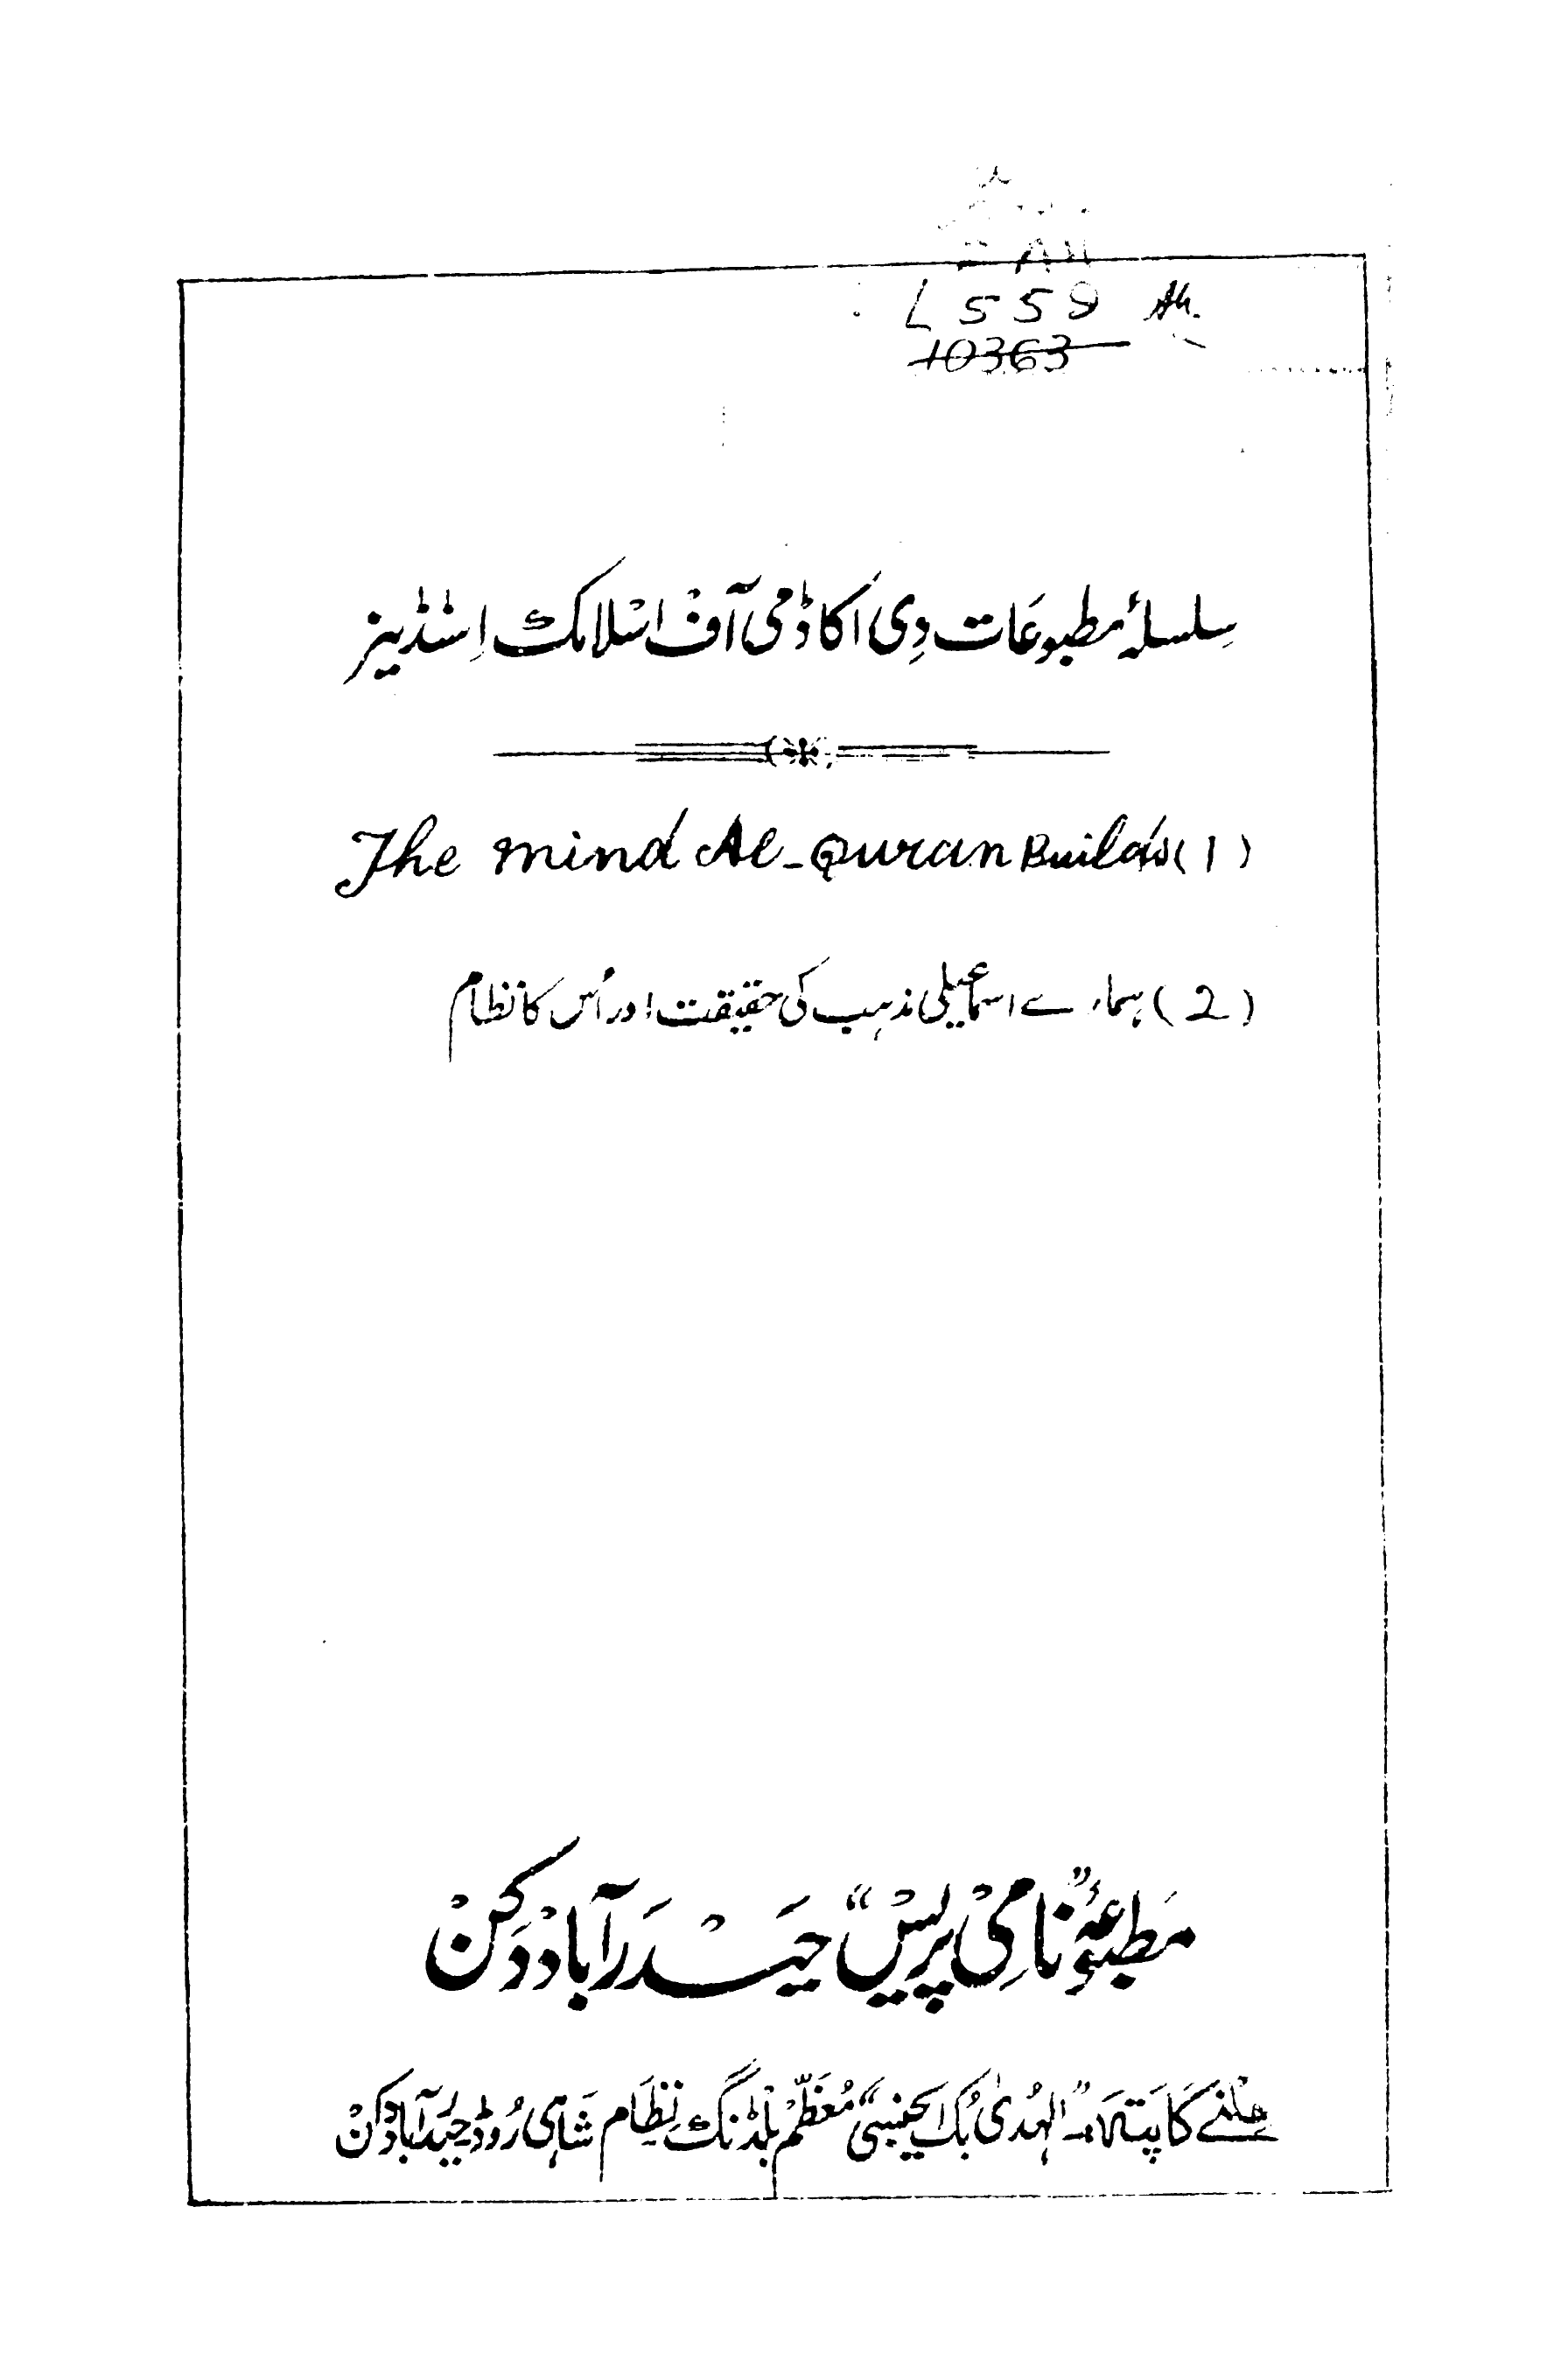 L 559 Ah.
10363
سلسلۂ مطبوعات دِی اکاڈمی آف اسلامک اِسٹڈیز
The mind Al-Quran Builds (1)
(2) ہمارے اسماعیلی مذہب کی حقیقت اور اُس کا نظام
مَطبُوعَۂ ”نامِیْ پریسْ“ حَیْدَرآبادْ دَکنْ
مِلنے کَا پَتہ:۔ ”الہُدیٰ بُک ایجنسی“ مُعَظَّمْ بلڈنگ نِظَام شَاہی رُوڈ حیدَرآباد دکنْ